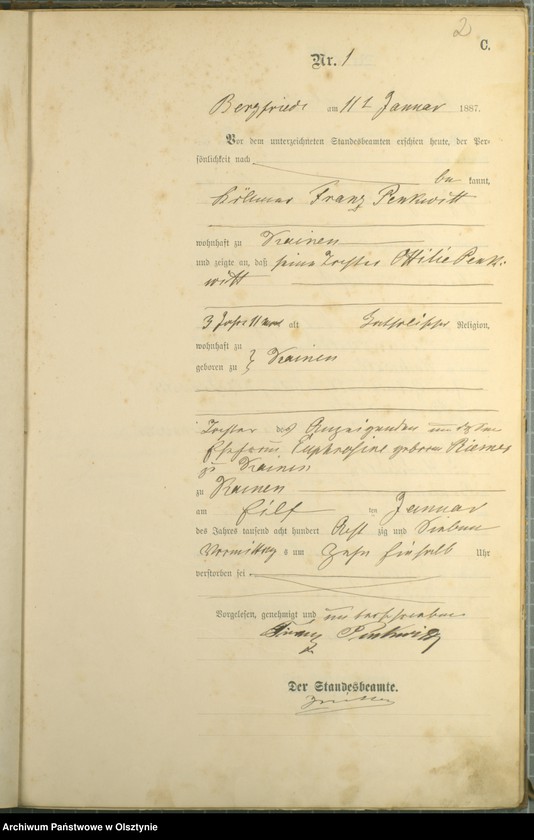 2
C.
Nr. 1
Bergfriede am 11 t Januar 1887.
Vor dem unterzeichneten Standesbeamten erschien heute, der Per-
sönlichkeit nach
be kannt,
Franz Penkwitt
wohnhaft zu Krainen
und zeigte an, daß seine Tochter Ottilie Penk-
witt
3 Jahre 11 alt katholischer Religion,
wohnhaft zu
geboren zu } Krainen
Tochter des Anzeigenden und dessen
Ehefrau Euphrosine geborene
zu Krainen
zu Krainen
am Eilf ten Januar
des Jahres tausend acht hundert Acht zig und Sieben
Vormittag s um Zehn einhalb Uhr
verstorben sei
Vorgelesen, genehmigt und unterschrieben
Franz Penkwitt
Der Standesbeamte.
Archiwum Państwowe w Olsztynie